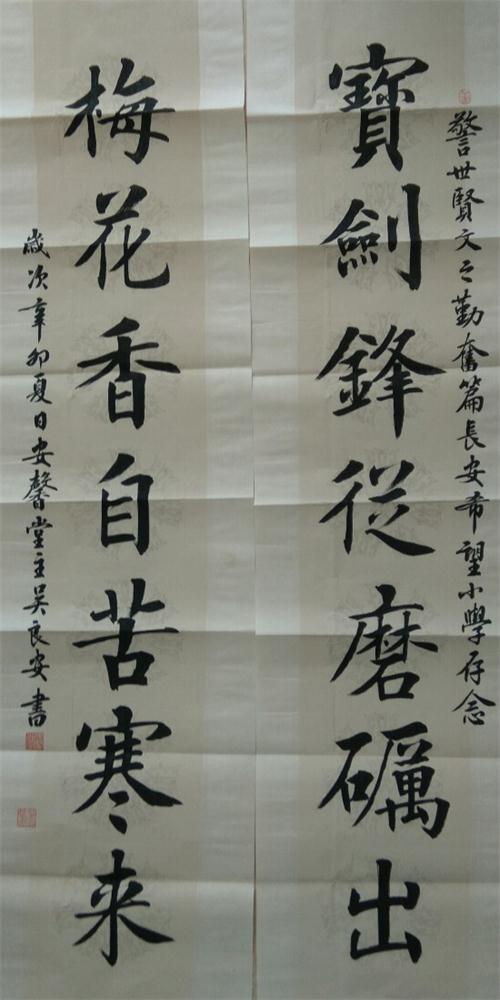 警世賢文之勤奮篇長安希望小學存念
寶劍鋒從磨礪出
梅花香自苦寒来
歲次辛卯夏日安馨堂主吴良安書